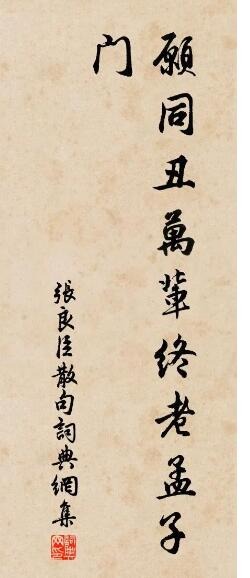 願同丑萬輩終老孟子
门
張良臣散句詞典網集